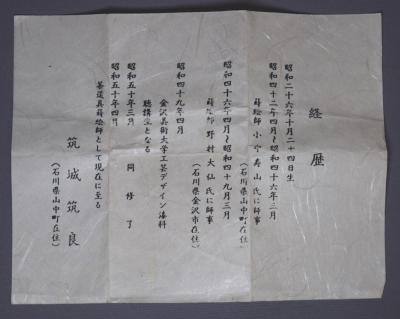 経歴
昭和二十六年十月二十四日生
昭和四十二年四月〜昭和四十六年三月
蒔絵師 小守寿山氏に師事
(石川県山中町在住)
昭和四十六年四月〜昭和四十九年三月
蒔絵師 野村大仙氏に師事
(石川県金沢市在住)
昭和四十九年四月
金沢美術大学工芸デザイン漆科
聴講生となる
昭和五十年三月 同修了
昭和五十年四月
茶道具蒔絵師として現在に至る
筑城筑良
(石川県山中町在住)